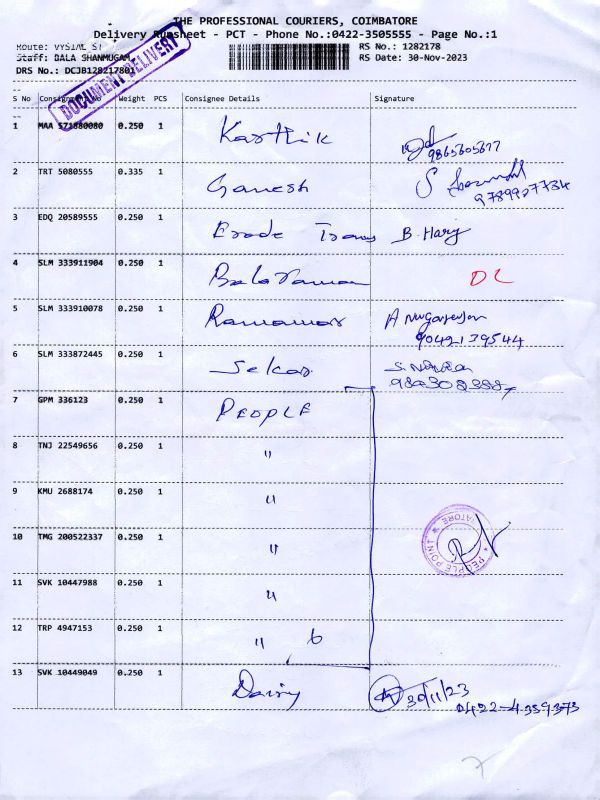 THE PROFESSIONAL COURIERS, COIMBATORE
Delivery Runsheet - PCT - Phone No.:0422-3505555 - Page No.:1
Route: VYSIAL ST RS No.: 1282178
Staff: BALA SHANMUGAM RS Date: 30-Nov-2023
DRS No.: DCJB128217801
DOCUMENT DELIVERY
S No Consignment No Weight PCS Consignee Details Signature
1 MAA 571880080 0.250 1 Karthik
9865605677
2 TRT 5080555 0.335 1 Ganesh
9789927734
3 EDQ 20589555 0.250 1 Erode Trans B. Hary
4 SLM 333911904 0.250 1 Balaraman DL
5 SLM 333910078 0.250 1 Ramamar
9042139544
6 SLM 333872445 0.250 1 Sekar
7 GPM 336123 0.250 1 PEOPLE
8 TNJ 22549656 0.250 1 "
9 KMU 2688174 0.250 1 "
10 TMG 200522337 0.250 1 "
PEOPLE POINT
11 SVK 10447988 0.250 1 "
12 TRP 4947153 0.250 1 " 6
13 SVK 10449049 0.250 1 Dairy 30/11/23
0422-4359373